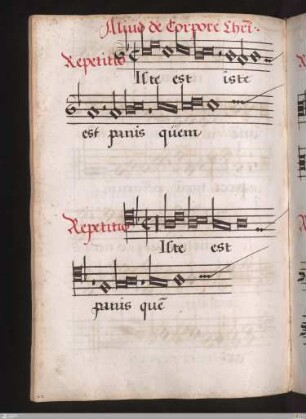 Aliud de Corpore Chri:
Repetitio
Iste est iste
est panis quem
Repetitio
Iste est
panis quē